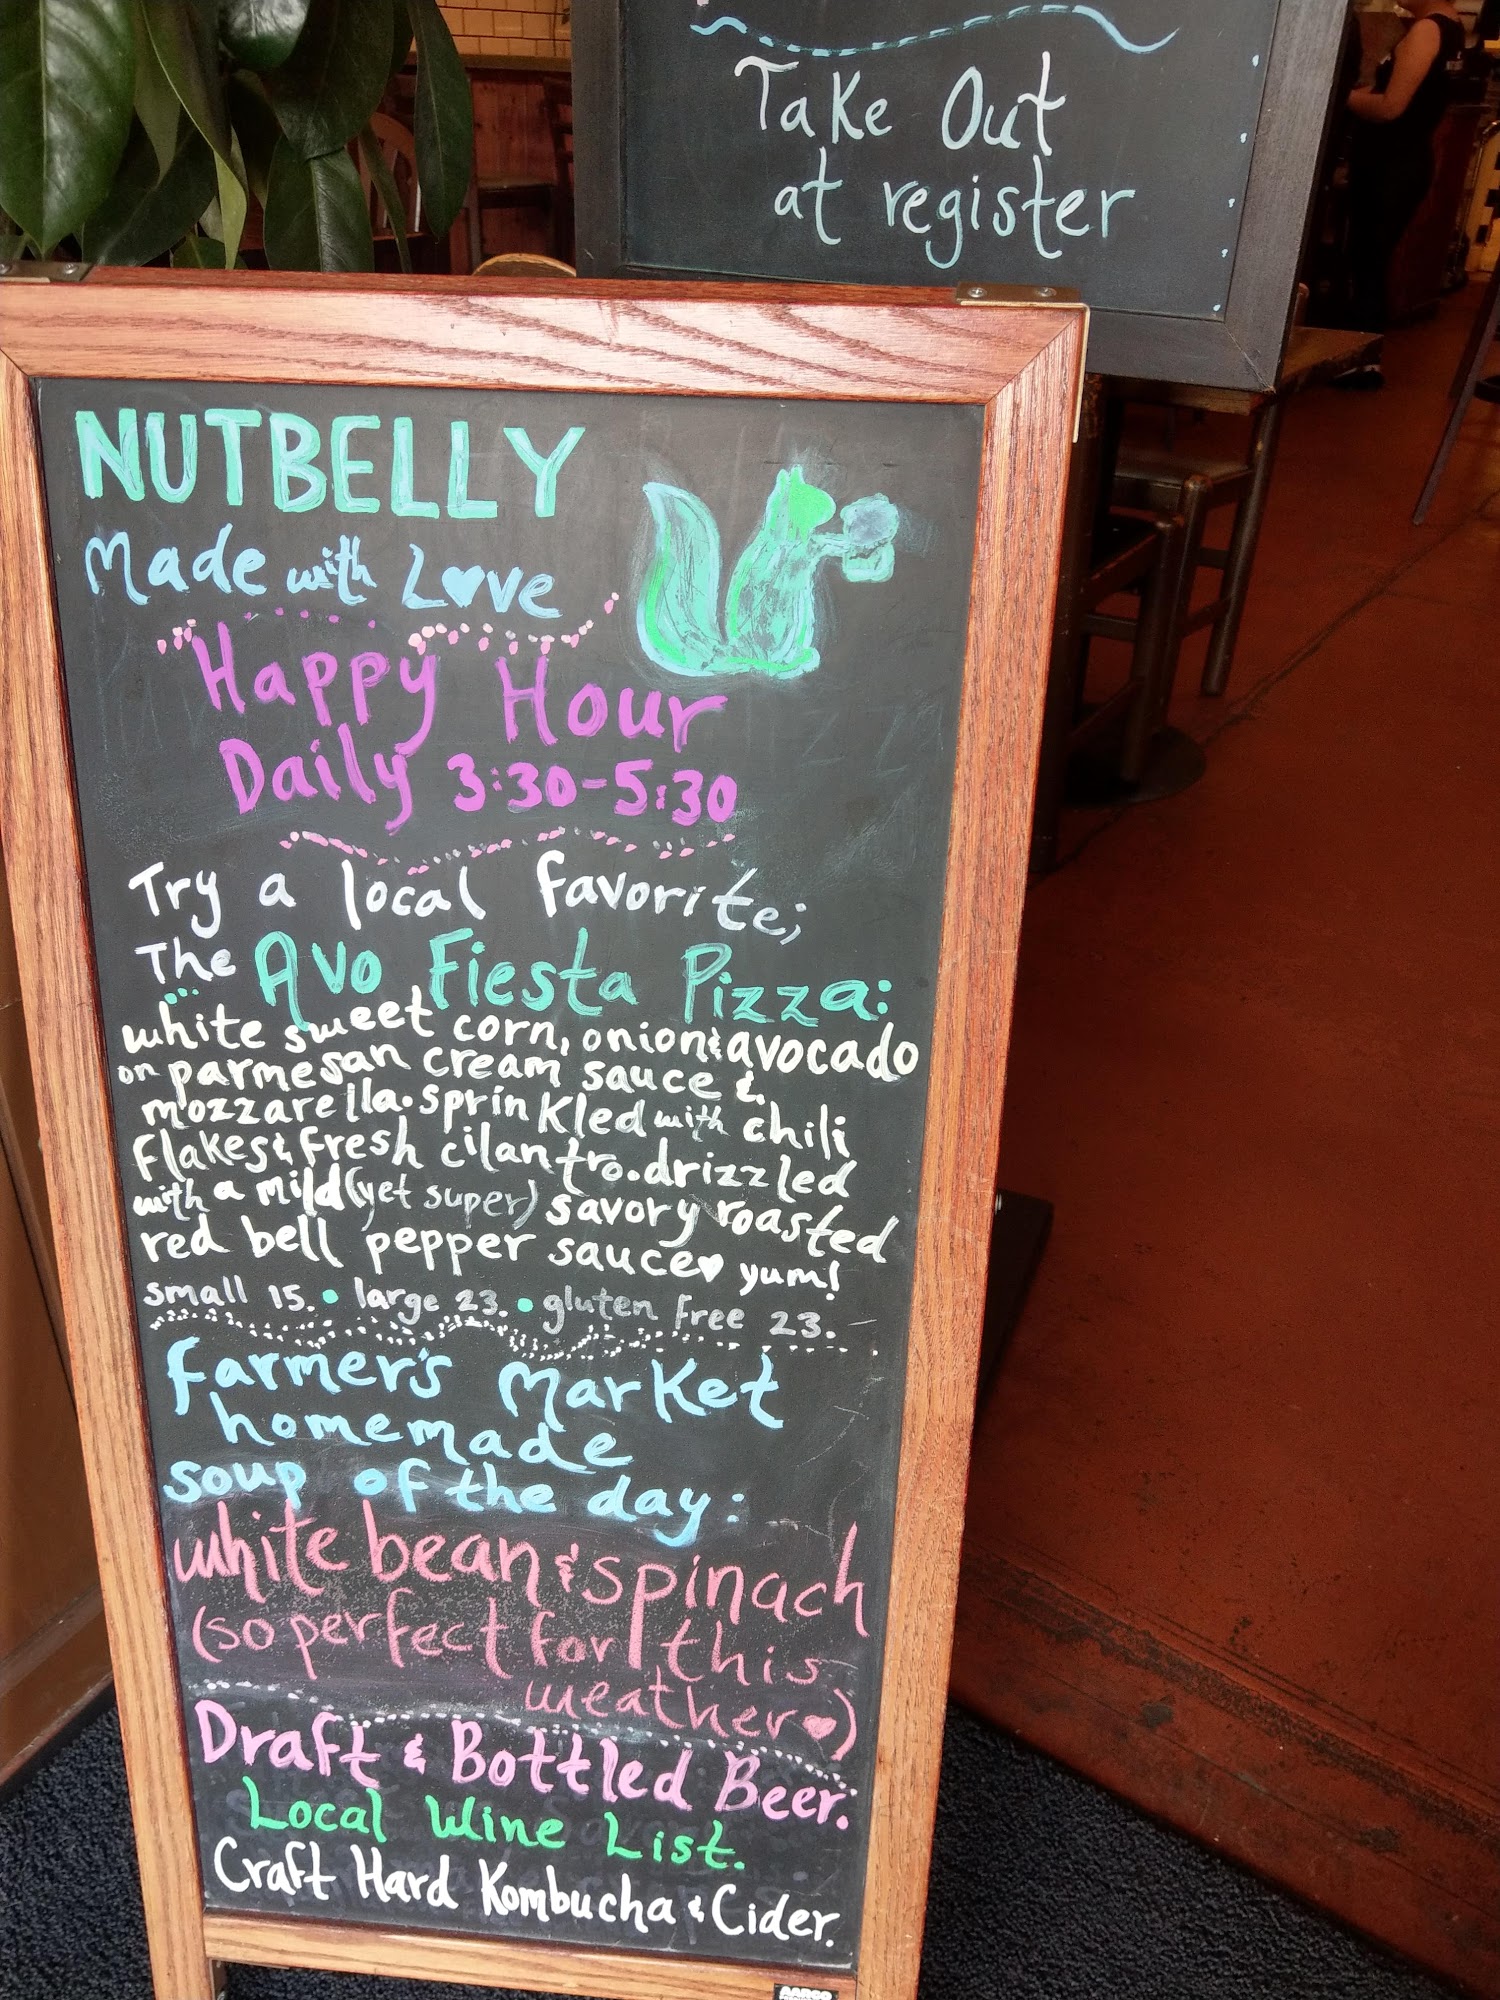 Take Out
at register
NUTBELLY
Made with L♥ve
Happy Hour
Daily 3:30-5:30
Try a local favorite;
The Avo Fiesta Pizza:
white sweet corn, onion & avocado
on parmesan cream sauce &
mozzarella. sprinkled with chili
flakes & fresh cilantro. drizzled
with a mild (yet super) savory roasted
red bell pepper sauce ♥ yum!
small 15. • large 23. • gluten free 23.
Farmer's Market
homemade
soup of the day:
white bean & spinach
(so perfect for this
weather ♥)
Draft & Bottled Beer.
Local Wine List.
Craft Hard Kombucha & Cider.
AARCO